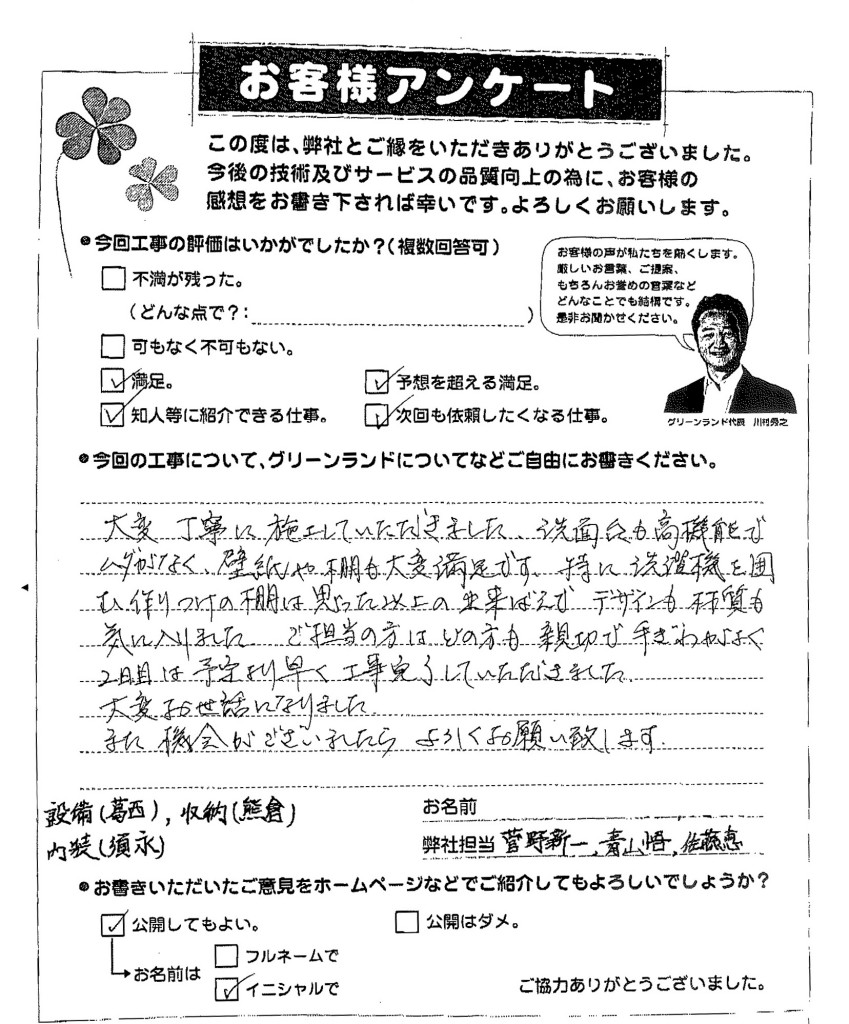 お客様アンケート
この度は、弊社とご縁をいただきありがとうございました。
今後の技術及びサービスの品質向上の為に、お客様の
感想をお書き下されば幸いです。よろしくお願いします。
今回工事の評価はいかがでしたか?(複数回答可)
お客様の声が私たちを熱くします。
厳しいお言葉、ご提案、
もちろんお誉めの言葉など
どんなことでも結構です。
是非お聞かせください。
不満が残った。
(どんな点で?: )
可もなく不可もない。
満足。
予想を超える満足。
知人等に紹介できる仕事。
次回も依頼したくなる仕事。
グリーンランド代表 川村秀之
今回の工事について、グリーンランドについてなどご自由にお書きください。
大変 丁寧に施工していただきました。洗面台も高機能で
ムダがなく、壁紙や棚も大変満足です。特に 洗濯機を囲
む作りつけの棚は思った以上の出来ばえで デザインも材質も
気に入りました。 ご担当の方はどの方も 親切で手ぎわがよく
2日目は予定より早く工事完了していただきました。
大変お世話になりました。
また 機会がございましたら よろしくお願い致します。
設備(葛西), 収納(熊倉)
内装(須永)
お名前
弊社担当 菅野新一、青山悟、佐藤恵
お書きいただいたご意見をホームページなどでご紹介してもよろしいでしょうか?
公開してもよい。
公開はダメ。
お名前は
フルネームで
イニシャルで
ご協力ありがとうございました。